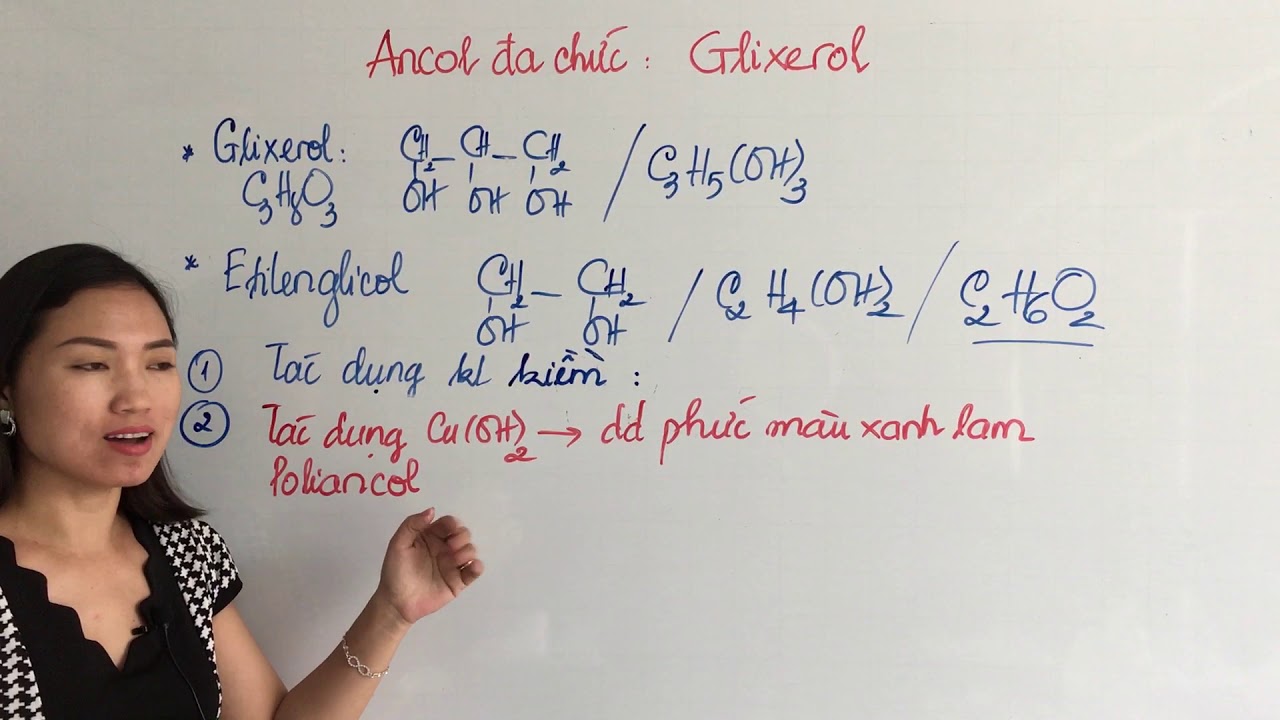 Ancol đa chức: Glixerol
* Glixerol: CH2 – CH – CH2 / C3H5(OH)3
C3H8O3 OH OH OH
* Etilenglicol CH2 – CH2 / C2H4(OH)2 / C2H6O2
OH OH
1 Tác dụng kl kiềm:
2 Tác dụng Cu(OH)2 → dd phức màu xanh lam
Poliancol